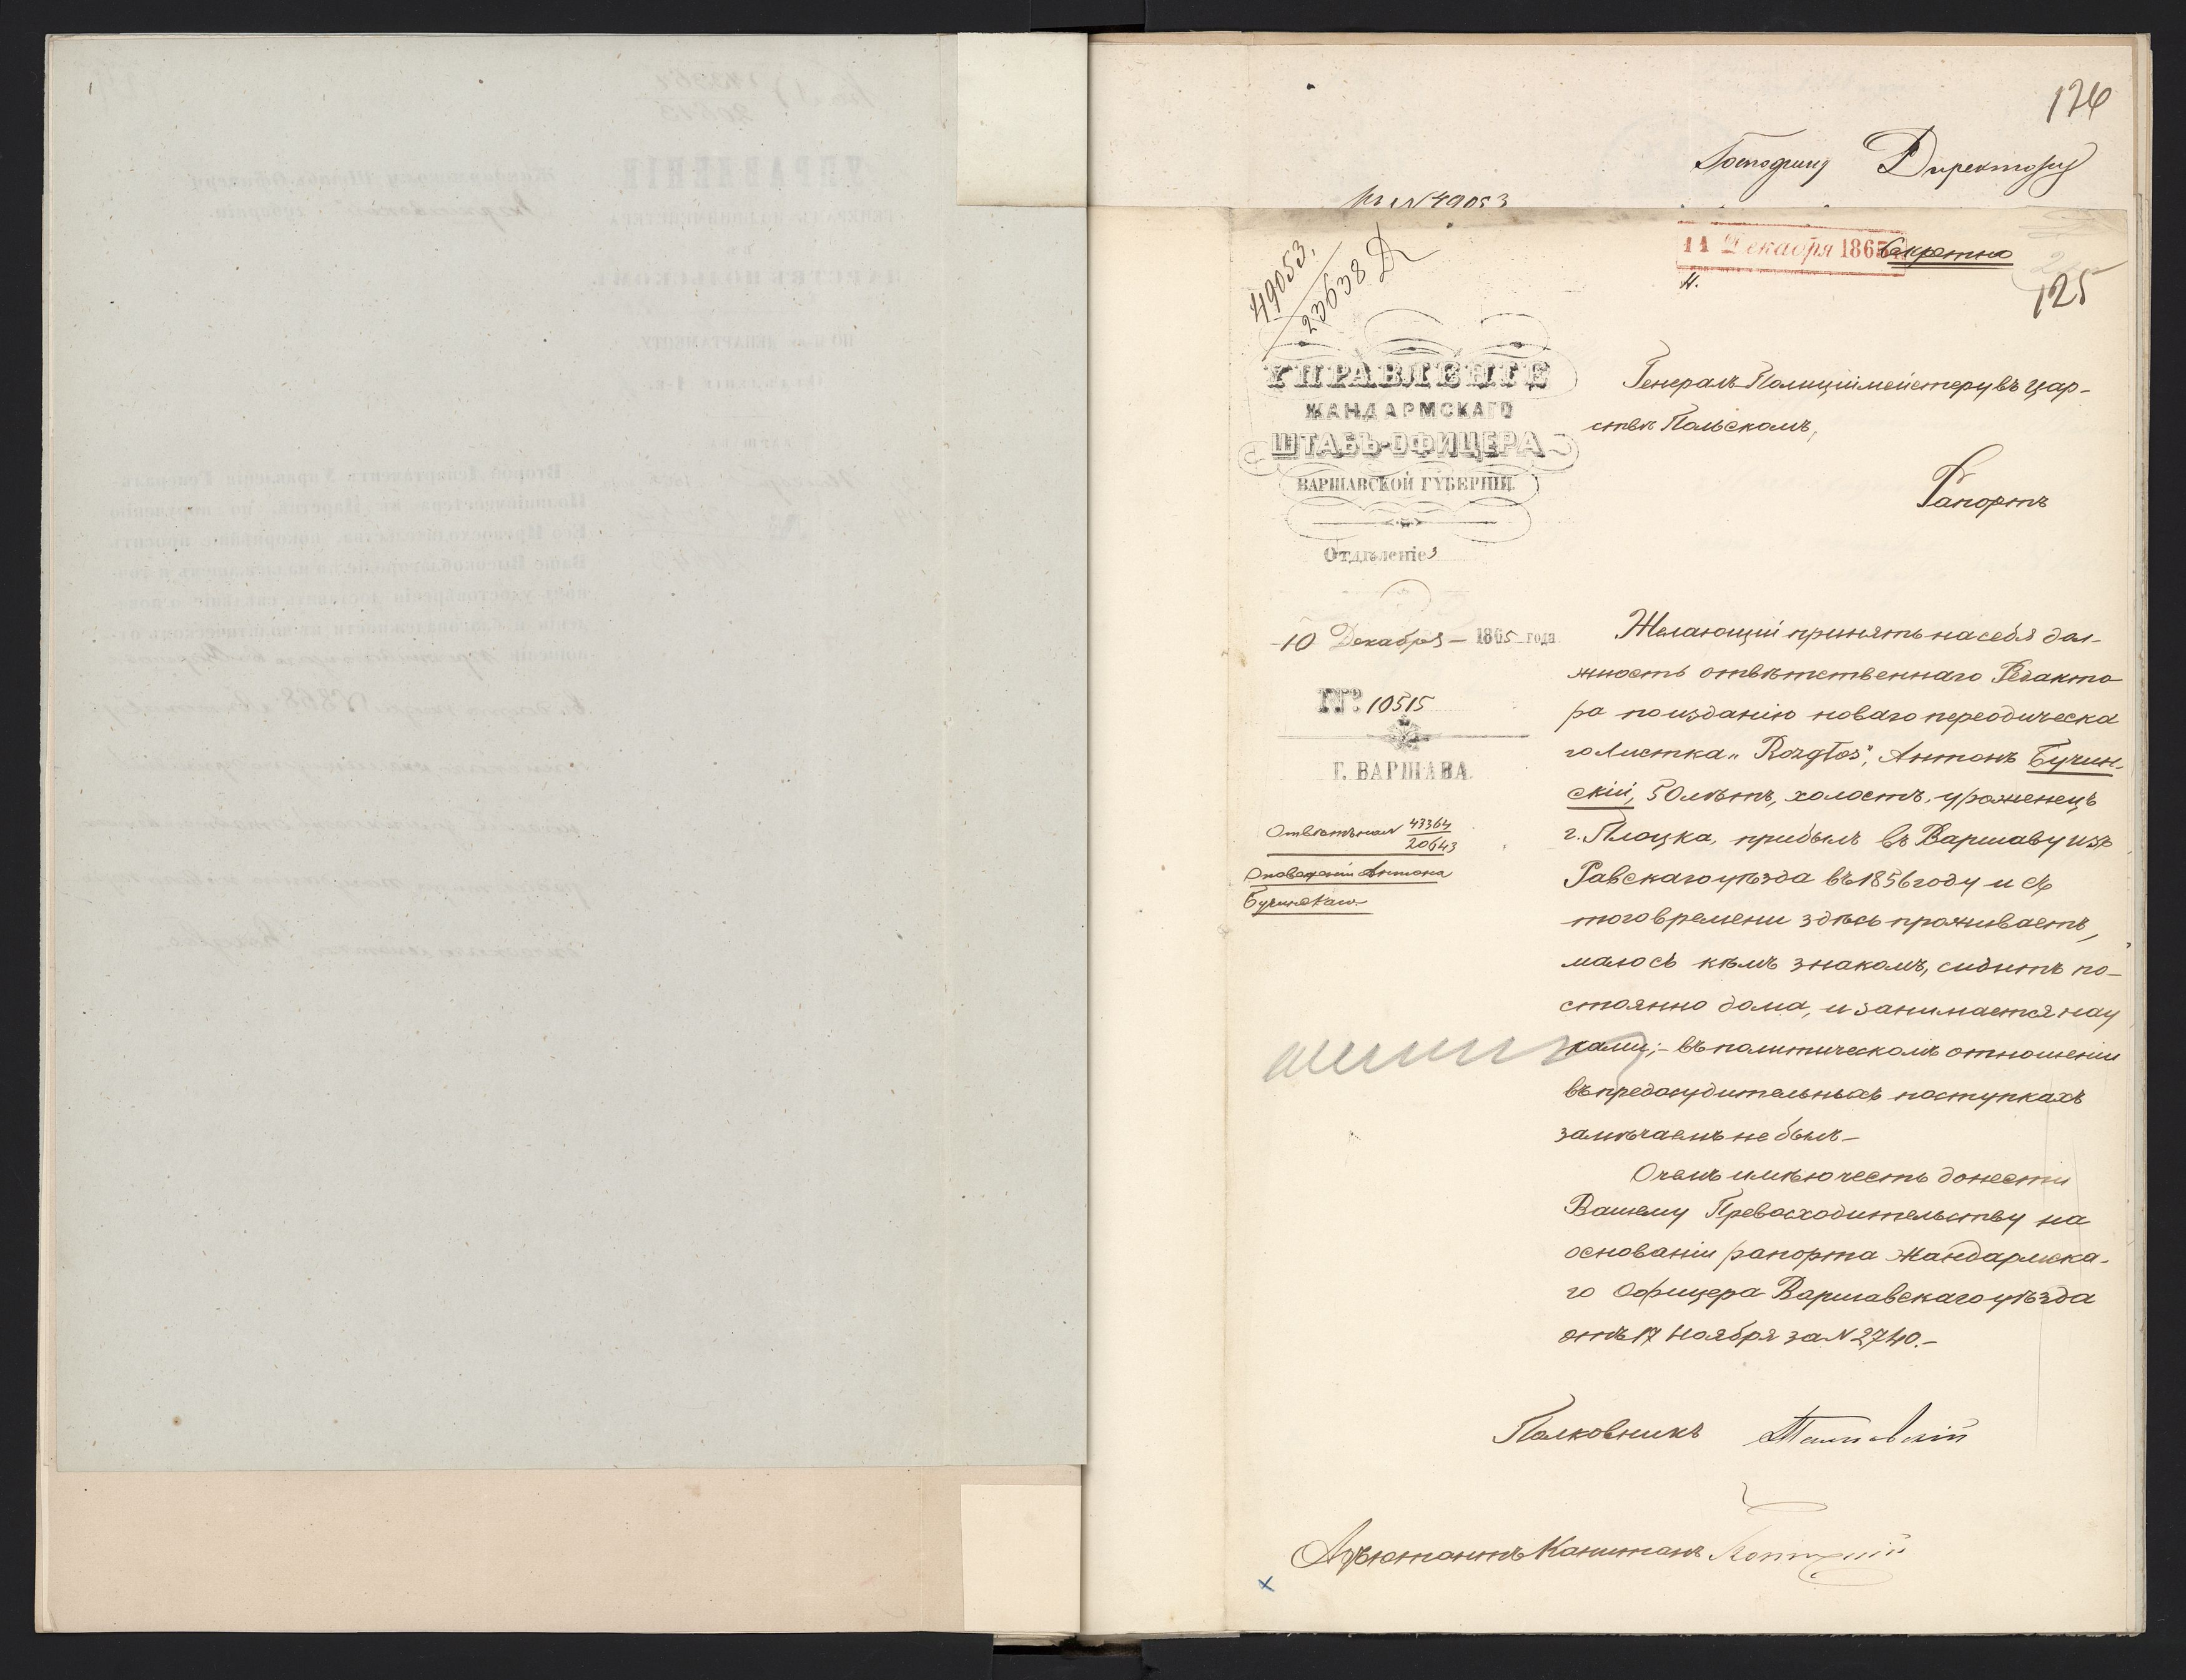 126
Господину Директору
№ 49053
49053.
23638 Д
11 Декабря 1865
Секретно
125
УПРАВЛЕНІЕ
ЖАНДАРМСКАГО
ШТАБЪ-ОФИЦЕРА
ВАРШАВСКОЙ ГУБЕРНІИ.
Отдѣленіе
10 Декабря 1865 года
№ 10515
Г. ВАРШАВА.
Отвѣтъ на № 43364
20643
О поведеніи Антона
Бучинскаго
Генералъ-Полиціймейстеру въ Цар-
ствѣ Польскомъ,
Рапортъ
Желающій принять на себя дол-
жность отвѣтственнаго Редакто
ра по изданію новаго переодическа
го Листка „Rozgłos“, Антонъ Бучин-
скій, 50 лѣтъ, холостъ, уроженецъ
г. Плоцка, прибылъ въ Варшаву изъ
Равскаго уѣзда въ 1856 году и съ
того времени здѣсь проживаетъ,
мало съ кѣмъ знакомъ, сидитъ по-
стоянно дома, и занимается нау
ками; - въ политическомъ отношеніи
въ предосудительныхъ поступкахъ
замѣчаемъ не былъ –
О чемъ имѣю честь донести
Вашему Превосходительству на
основаніи рапорта Жандармска-
го Офицера Варшавскаго уѣзда
отъ 17 Ноября за N 2740. –
Полковникъ
Адъютантъ Капитанъ